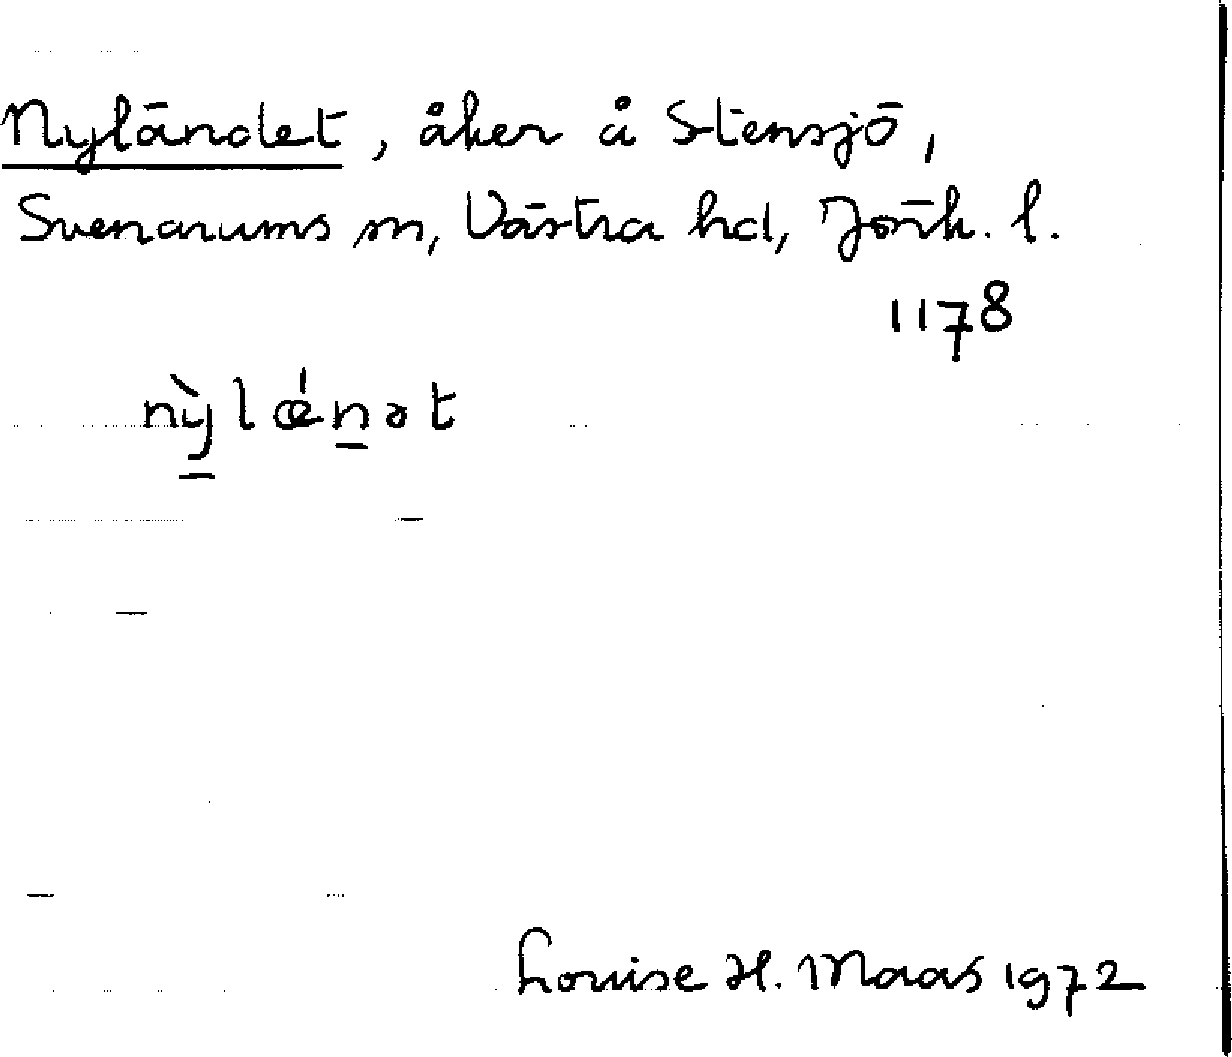 Nyländet, åker å Stensjö,
Svenarums sn, Västra hd, Jönk. l.
1178
nỳlǽnət
Louise H. Maas 1972